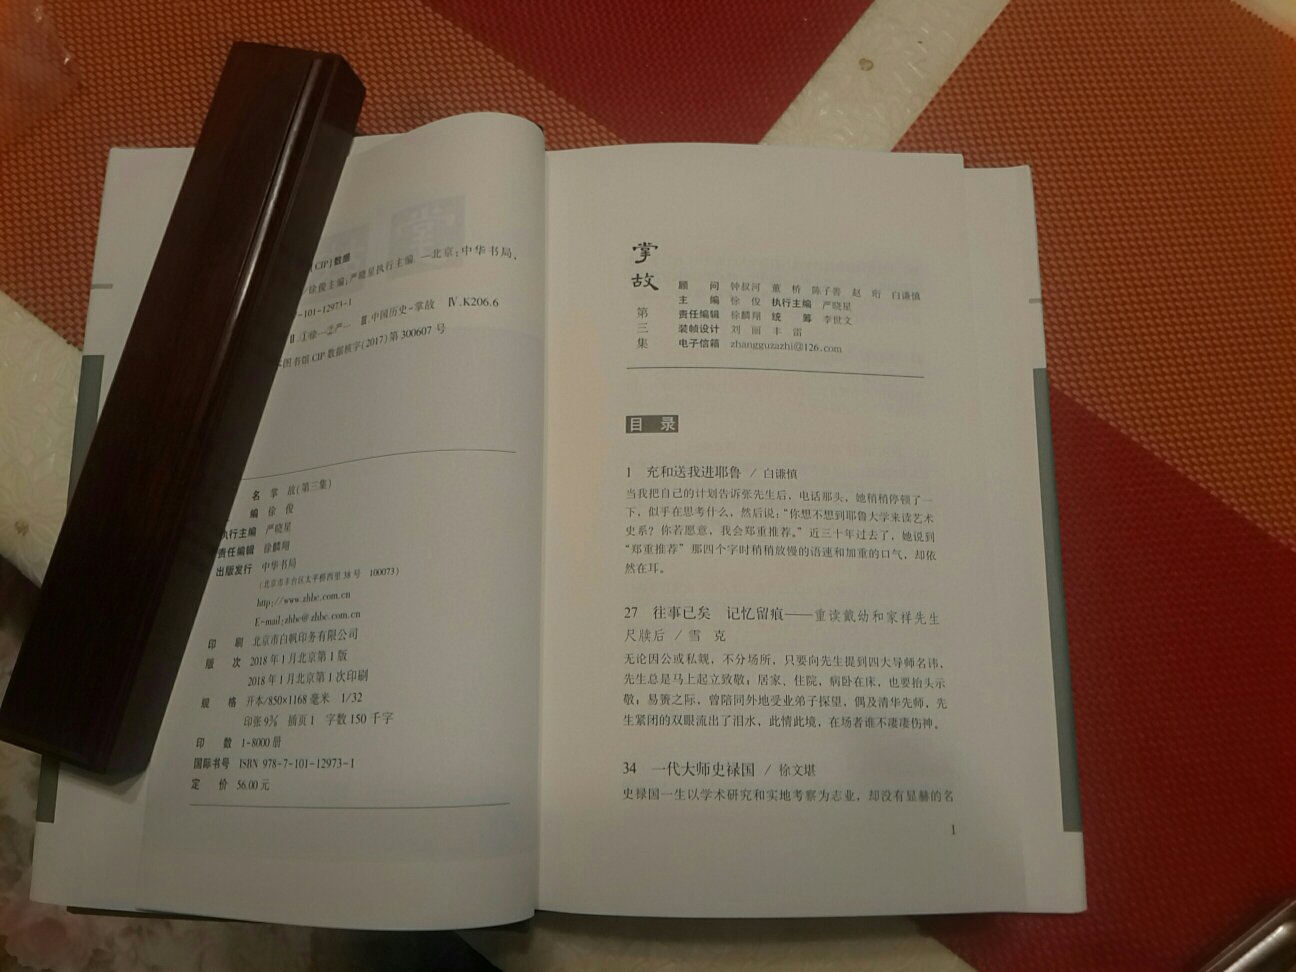 (CIP)数据
徐俊主编;严晓星执行主编.—北京:中华书局,
-101-12973-1
Ⅱ.①徐…②严… Ⅲ.中国历史-掌故 Ⅳ.K206.6
图书馆CIP数据核字(2017)第300607号
名 掌故(第三集)
编 徐 俊
执行主编 严晓星
责任编辑 徐麟翔
出版发行 中华书局
(北京市丰台区太平桥西里38号 100073)
http://www.zhbc.com.cn
E-mail:zhbc@zhbc.com.cn
印 刷 北京市白帆印务有限公司
版 次 2018年1月北京第1版
2018年1月北京第1次印刷
规 格 开本/850×1168毫米 1/32
印张9⅜ 插页1 字数150千字
印 数 1-8000册
国际书号 ISBN 978-7-101-12973-1
定 价 56.00元
掌故
第三集
顾 问 钟叔河 董 桥 陈子善 赵 珩 白谦慎
主 编 徐 俊 执行主编 严晓星
责任编辑 徐麟翔 统 筹 李世文
装帧设计 刘 丽 丰 雷
电子信箱 zhangguzazhi@126.com
目 录
1 充和送我进耶鲁 / 白谦慎
当我把自己的计划告诉张先生后,电话那头,她稍稍停顿了一
下,似乎在思考什么,然后说:“你想不想到耶鲁大学来读艺术
史系?你若愿意,我会郑重推荐。”近三十年过去了,她说到
“郑重推荐”那四个字时稍稍放慢的语速和加重的口气,却依
然在耳。
27 往事已矣 记忆留痕——重读戴幼和家祥先生
尺牍后 / 雪 克
无论因公或私觌,不分场所,只要向先生提到四大导师名讳,
先生总是马上起立致敬;居家、住院,病卧在床,也要抬头示
敬;易箦之际,曾陪同外地受业弟子探望,偶及清华先师,先
生紧闭的双眼流出了泪水,此情此境,在场者谁不凄凄伤神。
34 一代大师史禄国 / 徐文堪
史禄国一生以学术研究和实地考察为志业,却没有显赫的名
1